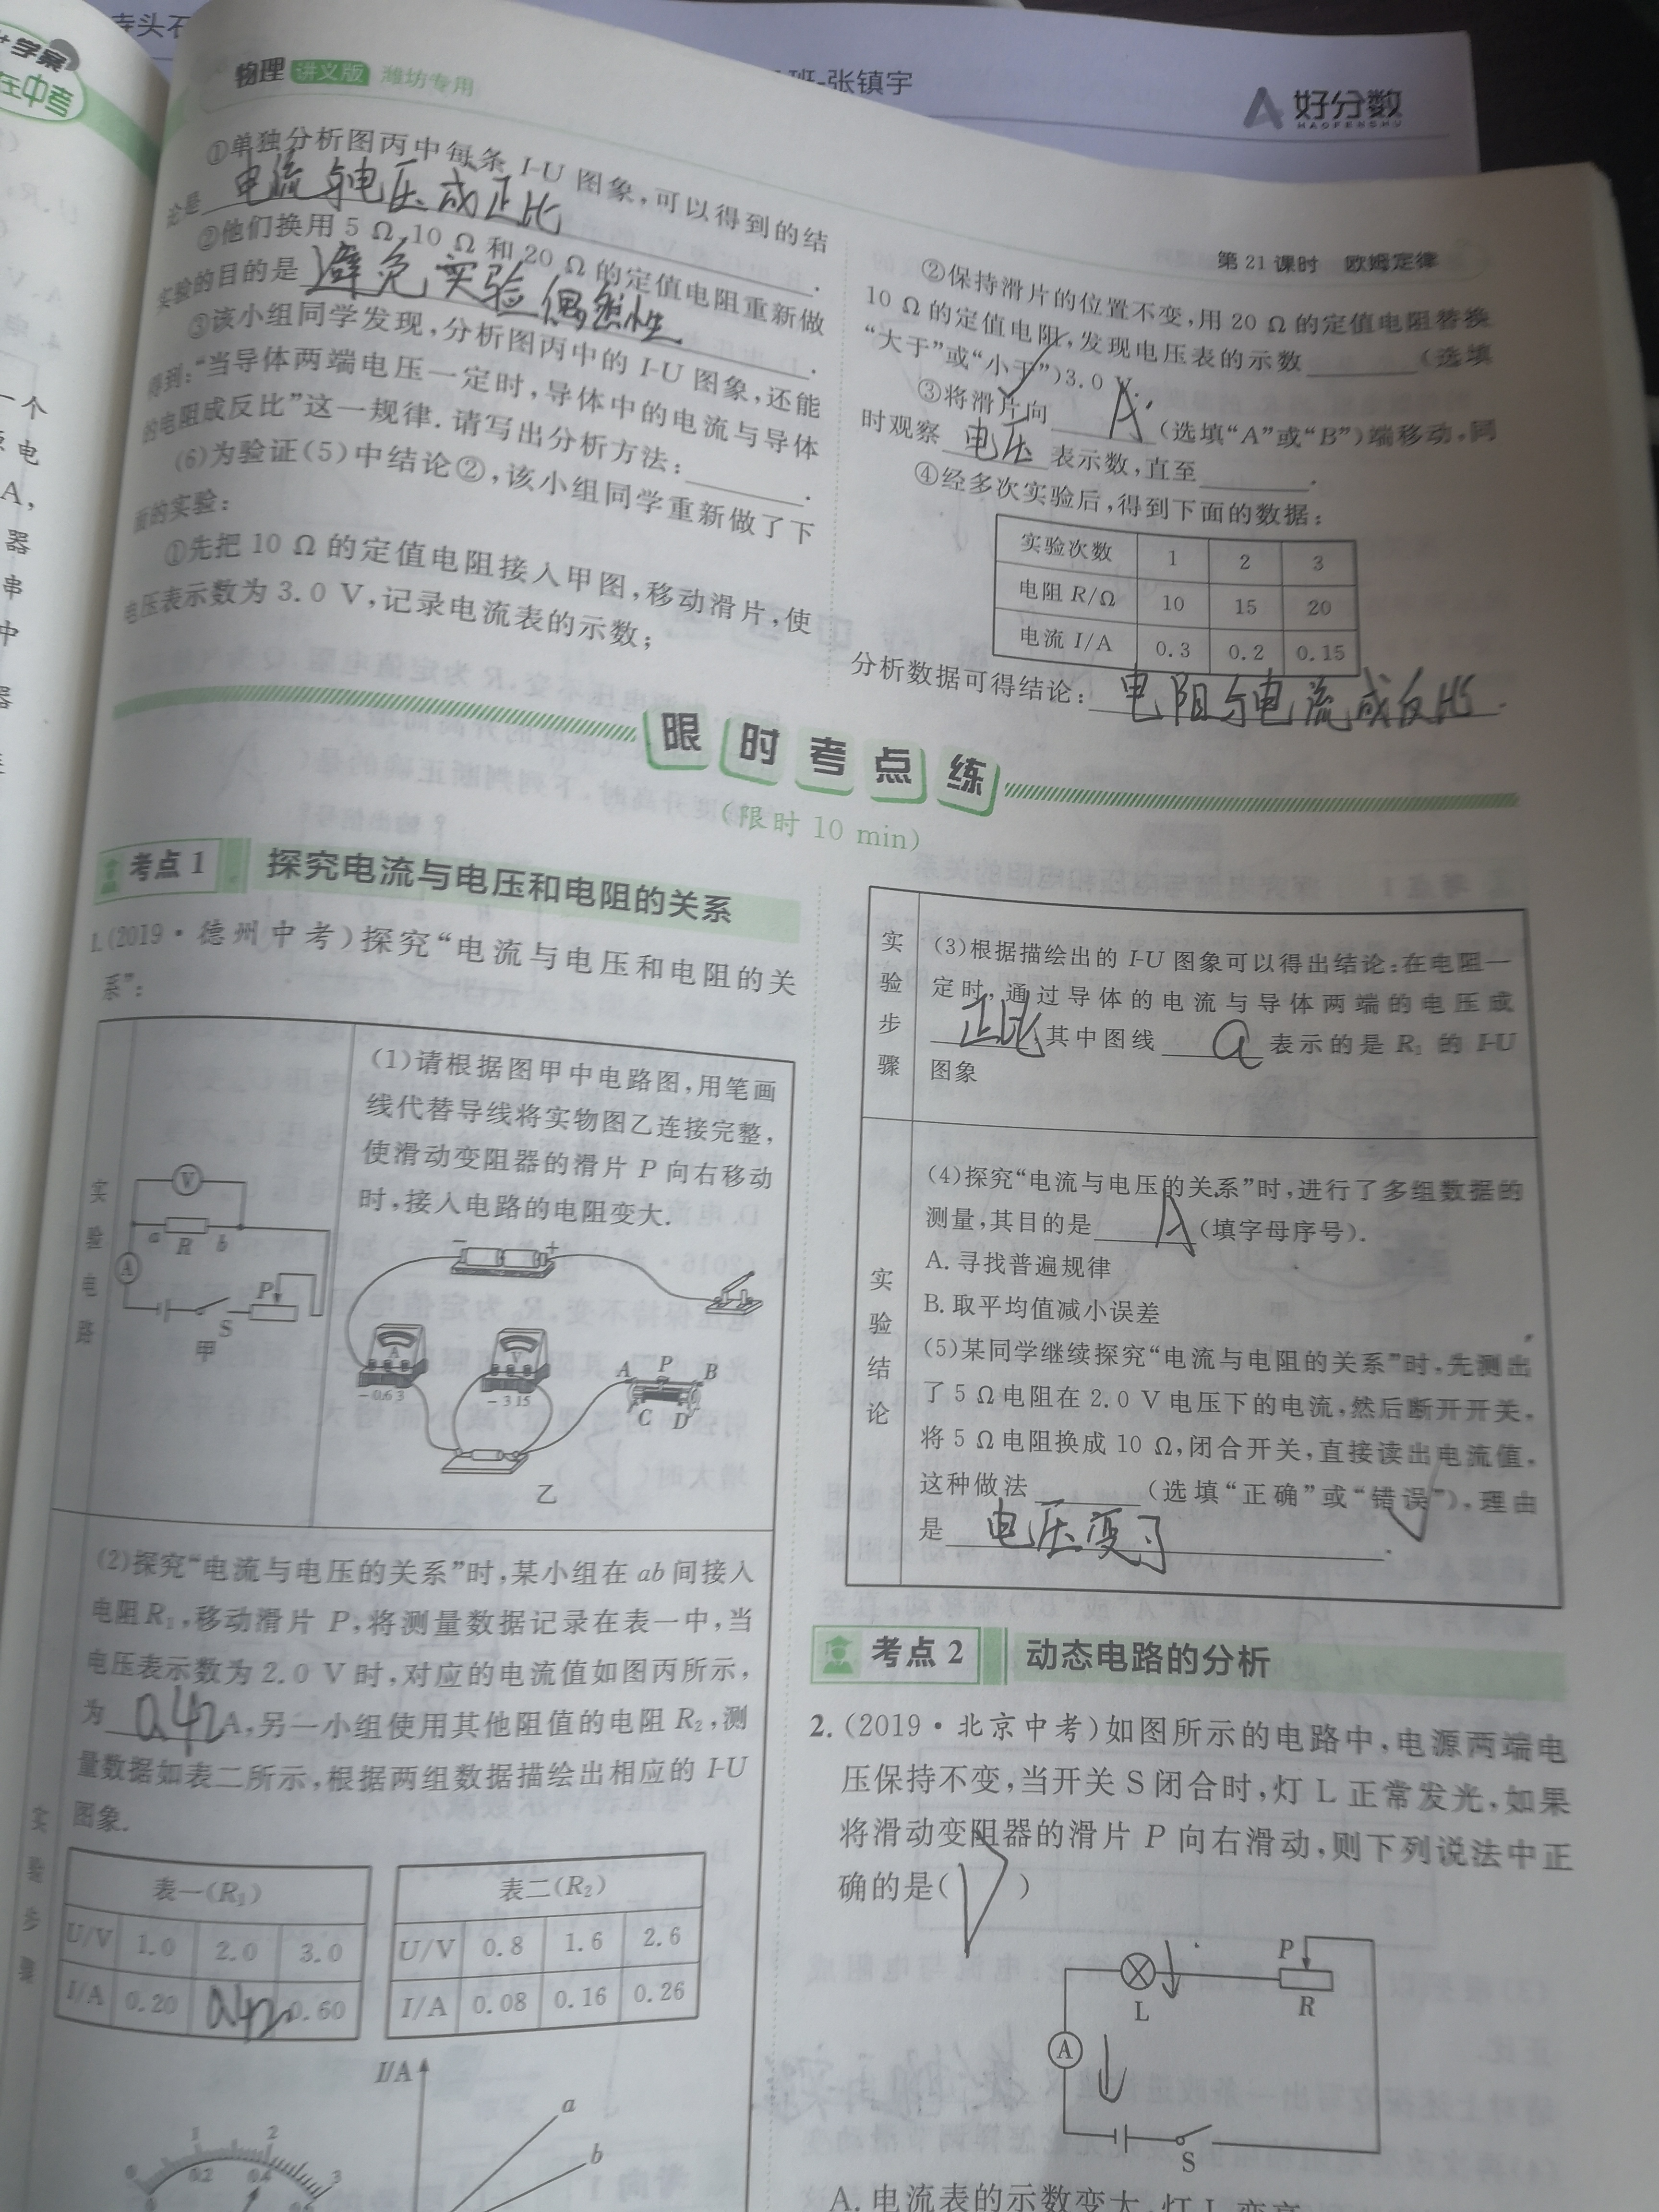 寺头石
班-张镇宇
好分数
HAOFENSHU
学案
在中考
物理 讲义版 潍坊专用
第21课时 欧姆定律
①单独分析图丙中每条 I-U 图象,可以得到的结
论是电流与电压成正比.
②他们换用 5 Ω、10 Ω 和 20 Ω 的定值电阻重新做
实验的目的是避免实验偶然性.
③该小组同学发现,分析图丙中的 I-U 图象,还能
得到:“当导体两端电压一定时,导体中的电流与导体
的电阻成反比”这一规律.请写出分析方法:________.
(6)为验证(5)中结论②,该小组同学重新做了下
面的实验:
①先把 10 Ω 的定值电阻接入甲图,移动滑片,使
电压表示数为 3.0 V,记录电流表的示数;
②保持滑片的位置不变,用 20 Ω 的定值电阻替换
10 Ω 的定值电阻,发现电压表的示数________(选填
“大于”或“小于”)3.0 V.
③将滑片向 A (选填“A”或“B”)端移动,同
时观察 电压 表示数,直至________.
④经多次实验后,得到下面的数据:
实验次数 1 2 3
电阻 R/Ω 10 15 20
电流 I/A 0.3 0.2 0.15
分析数据可得结论:电阻与电流成反比.
限时考点练
(限时 10 min)
考点 1 探究电流与电压和电阻的关系
1.(2019·德州中考)探究“电流与电压和电阻的关
系”:
实验电路
(1)请根据图甲中电路图,用笔画
线代替导线将实物图乙连接完整,
使滑动变阻器的滑片 P 向右移动
时,接入电路的电阻变大.
V
a R b
A
P
S
甲
− +
A
V
−0.6 3
−3 15
A P B
C D
乙
实验步骤
(2)探究“电流与电压的关系”时,某小组在 ab 间接入
电阻 R₁,移动滑片 P,将测量数据记录在表一中,当
电压表示数为 2.0 V 时,对应的电流值如图丙所示,
为 0.42 A,另一小组使用其他阻值的电阻 R₂,测
量数据如表二所示,根据两组数据描绘出相应的 I-U
图象.
表一(R₁)
U/V 1.0 2.0 3.0
I/A 0.20 0.42 0.60
表二(R₂)
U/V 0.8 1.6 2.6
I/A 0.08 0.16 0.26
I/A
a
b
0 1 2 3
0 0.2 0.4 0.6
实验步骤
(3)根据描绘出的 I-U 图象可以得出结论:在电阻一
定时,通过导体的电流与导体两端的电压成
正比,其中图线 a 表示的是 R₁ 的 I-U
图象
实验结论
(4)探究“电流与电压的关系”时,进行了多组数据的
测量,其目的是 A (填字母序号).
A.寻找普遍规律
B.取平均值减小误差
(5)某同学继续探究“电流与电阻的关系”时,先测出
了 5 Ω 电阻在 2.0 V 电压下的电流,然后断开开关,
将 5 Ω 电阻换成 10 Ω,闭合开关,直接读出电流值,
这种做法________(选填“正确”或“错误”),理由
是 电压变了.
考点 2 动态电路的分析
2.(2019·北京中考)如图所示的电路中,电源两端电
压保持不变,当开关 S 闭合时,灯 L 正常发光,如果
将滑动变阻器的滑片 P 向右滑动,则下列说法中正
确的是( D )
P
L R
A
S
A.电流表的示数变大,灯 L 变亮